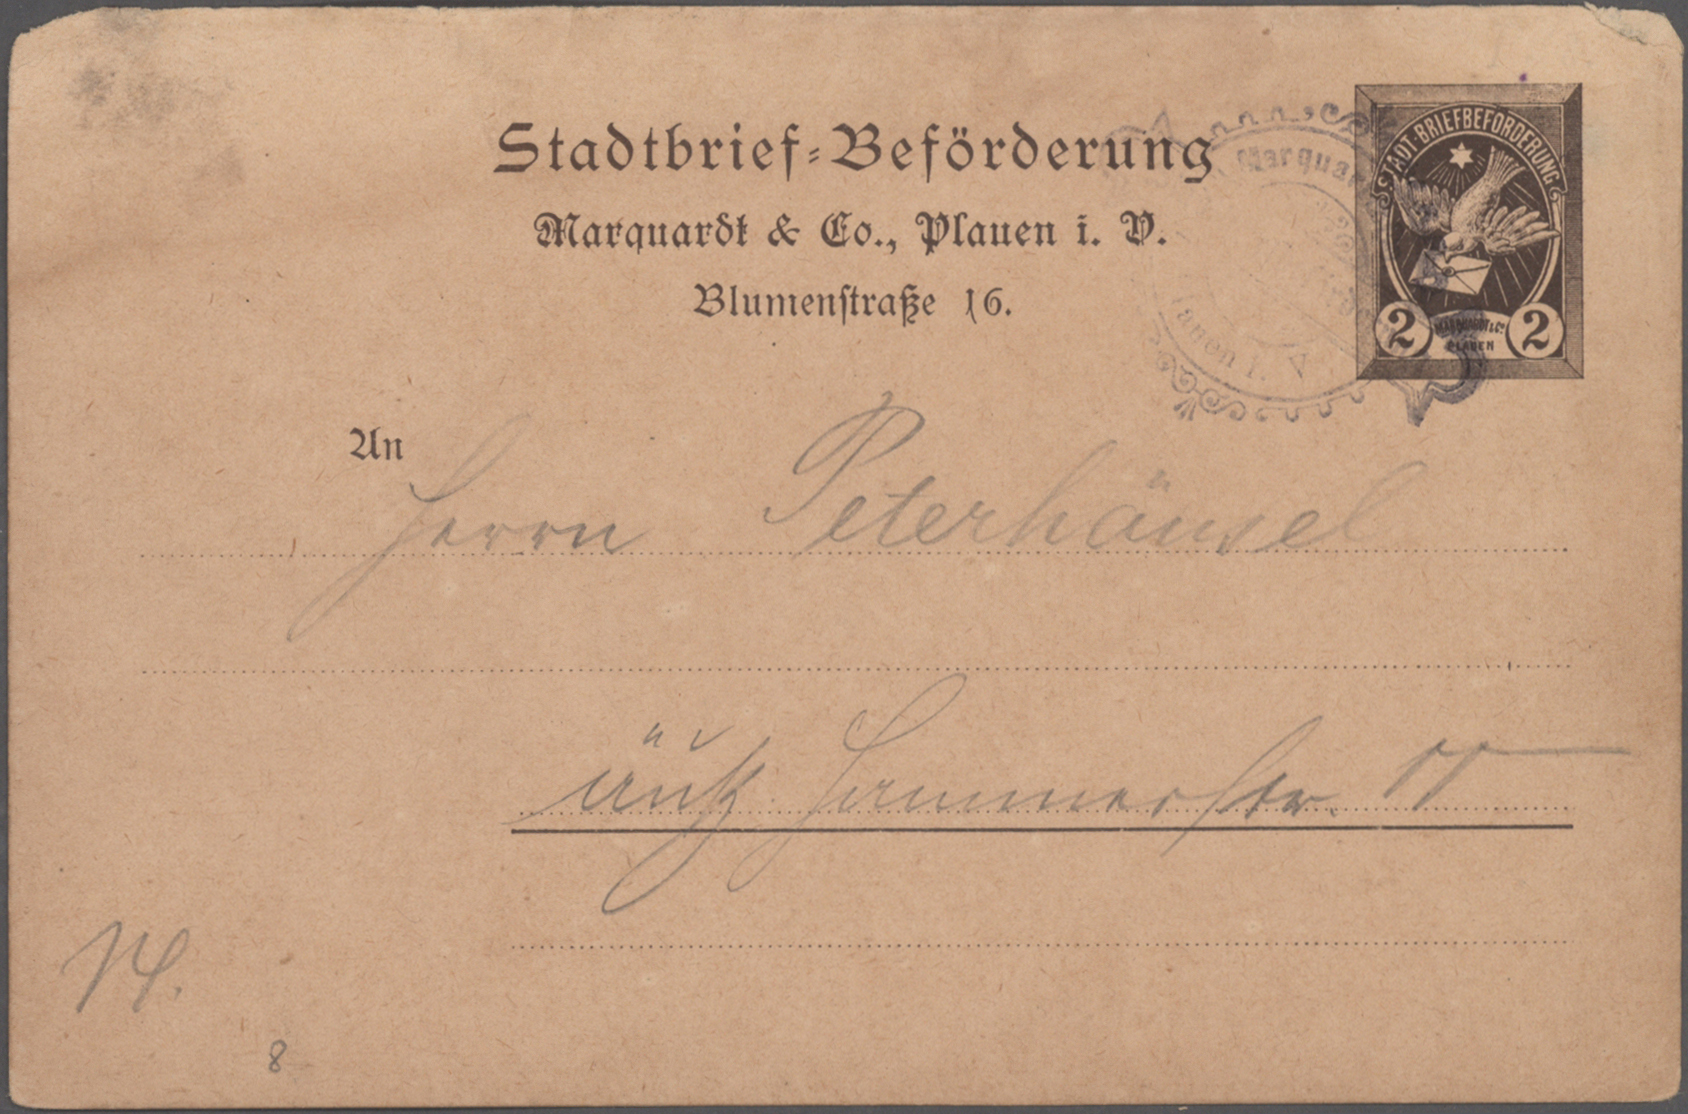 Stadtbrief-Beförderung
Marquardt & Co., Plauen i. V.
Blumenstraße 16.
STADT-BRIEFBEFÖRDERUNG
2 MARQUARDT & Co. PLAUEN 2
Marquar
lauen i. V
An
Herrn Peterhänsel
äuß. Hammerstr.
8